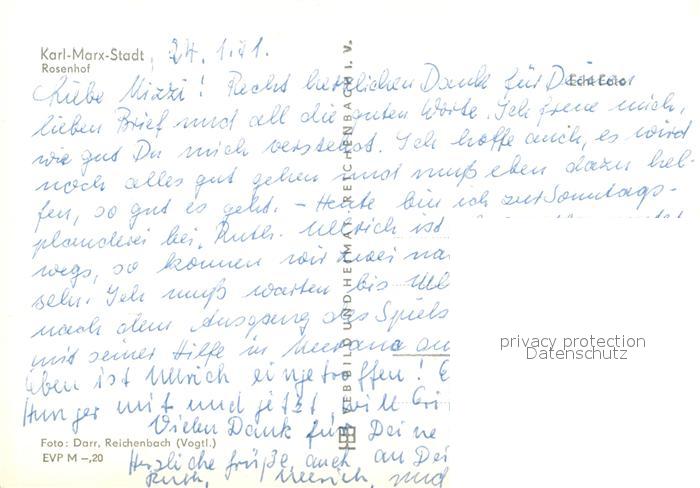 Karl-Marx-Stadt, 24.1.71.
Rosenhof
Echt Foto
Liebe Mizzi! Recht herzlichen Dank für Deinen
lieben Brief und all die guten Worte. Ich freue mich,
wie gut Du mich verstehst. Ich hoffe auch, es wird
noch alles gut gehen und muß eben dazu hel-
fen, so gut es geht. – Heute bin ich zur Sonntags-
plauderei bei Ruth. Ullrich ist
wegs, so können wir zwei
seln. Ich muß warten bis Ull
nach dem Ausgang des Spiels
mit seiner Hilfe in Meerane
eben ist Ullrich eingetroffen!
Hunger mit und jetzt will
Vielen Dank für Deine
Herzliche Grüße, auch an Dei
Ruth, Ullrich, und
VEB BILD UND HEIMAT REICHENBACH I. V.
privacy protection
Datenschutz
Foto: Darr, Reichenbach (Vogtl.)
EVP M –,20